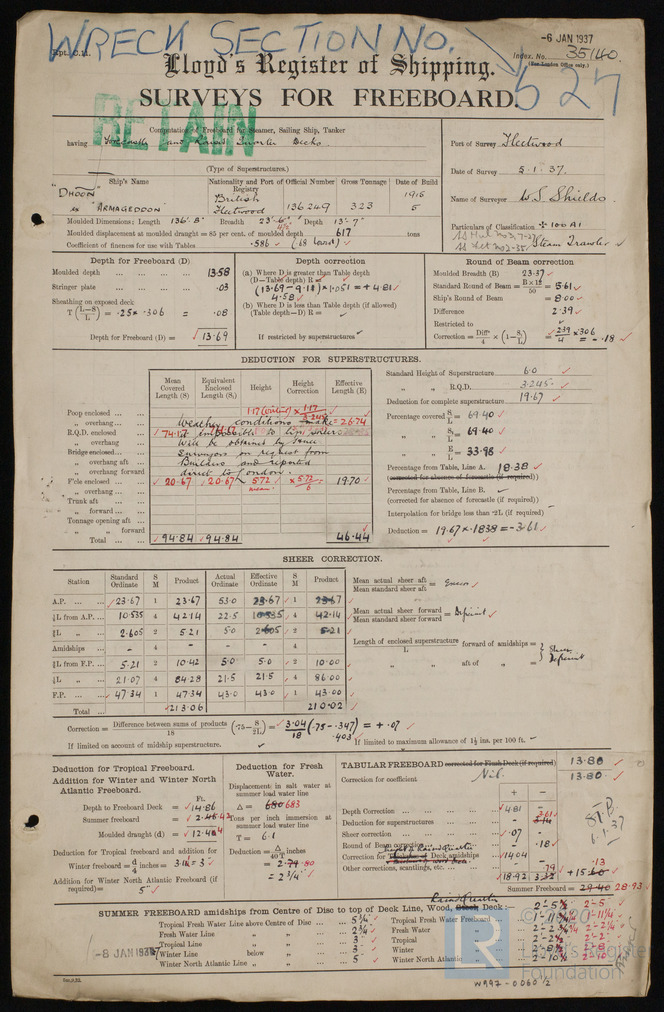 WRECK SECTION NO. 527
Rpt. C.11.
-6 JAN 1937
Index. No. 35140.
(For London Office only.)
Lloyd's Register of Shipping.
SURVEYS FOR FREEBOARD.
RETAIN
Computation of Freeboard for Steamer, Sailing Ship, Tanker
having Forecastle and Raised Quarter Decks
(Type of Superstructures.)
Port of Survey Fleetwood
Date of Survey 5.1.37.
Name of Surveyor W.S. Shields
Particulars of Classification + 100 A1
Steam Trawler
Ship's Name
"DHOON"
ex "ARMAGEDDON"
Nationality and Port of Registry
British
Fleetwood
Official Number
136249
Gross Tonnage
323
Date of Build
1915
5
Moulded Dimensions: Length 136'. 8" Breadth 23'. Depth 13'- 7"
Moulded displacement at moulded draught = 85 per cent. of moulded depth 617 tons
Coefficient of fineness for use with Tables .586 (.68 used)
Depth for Freeboard (D)
Moulded depth ... 13.58
Stringer plate ... .03
Sheathing on exposed deck
T (L-S/L) = .25 x .306 = .08
Depth for Freeboard (D) = 13.69
Depth correction
(a) Where D is greater than Table depth
(D—Table depth) R =
(13.69 - 9.11) x 1.051 = + 4.81
4.58
(b) Where D is less than Table depth (if allowed)
(Table depth—D) R =
If restricted by superstructures
Round of Beam correction
Moulded Breadth (B) 23.37
Standard Round of Beam = B x 12/50 = 5.61
Ship's Round of Beam = 8.00
Difference 2.39
Restricted to
Correction = Diff./4 x (1 - S/L) = 2.39/4 x .306 = - .18
DEDUCTION FOR SUPERSTRUCTURES.
Mean Covered Length (S)
Equivalent Enclosed Length (S₁)
Height
Height Correction
Effective Length (E)
Poop enclosed ...
„ overhang ...
R.Q.D. enclosed ... 74.17 26.74
„ overhang
Bridge enclosed...
„ overhang aft ...
„ overhang forward
F'cle enclosed ... 20.67 20.67 5.72 mean x 5.72/6 19.70
„ overhang ...
Trunk aft ...
„ forward ...
Tonnage opening aft ...
„ „ forward
Total ... 94.84 94.84 46.44
Weather conditions make
it impossible to
will be obtained by
Surveyors on request from
Builders and reported
direct to London.
Standard Height of Superstructure 6.0
„ „ R.Q.D. 3.245
Deduction for complete superstructure 19.67
Percentage covered S/L = 69.40
„ S₁/L = 69.40
„ E/L = 33.98
Percentage from Table, Line A. 18.38
(corrected for absence of forecastle (if required))
Percentage from Table, Line B.
(corrected for absence of forecastle (if required))
Interpolation for bridge less than ·2L (if required)
Deduction = 19.67 x .1838 = - 3.61
SHEER CORRECTION.
Station
Standard Ordinate
S M
Product
Actual Ordinate
Effective Ordinate
S M
Product
A.P. ... 23.67 1 23.67 53.0 23.67 1 23.67
⅙L from A.P. ... 10.535 4 42.14 22.5 10.535 4 42.14
⅓L „ 2.605 2 5.21 5.0 2.605 2 5.21
Amidships ... - 4 - - - 4 -
⅓L from F.P. ... 5.21 2 10.42 5.0 5.0 2 10.00
⅙L „ ... 21.07 4 84.28 21.5 21.5 4 86.00
F.P. ... 47.34 1 47.34 43.0 43.0 1 43.00
Total ... 213.06 210.02
Mean actual sheer aft / Mean standard sheer aft = Excess
Mean actual sheer forward / Mean standard sheer forward = Deficient
Length of enclosed superstructure/L forward of amidships =
„ „ aft of „ =
Sheer Deficient
Correction = Difference between sums of products/18 (·75 - S/2L) = 3.04/18 (.75 - .347) = + .07
.403
If limited on account of midship superstructure.
If limited to maximum allowance of 1½ ins. per 100 ft.
Deduction for Tropical Freeboard.
Addition for Winter and Winter North Atlantic Freeboard.
Ft.
Depth to Freeboard Deck = 14.86
Summer freeboard = 2.42
Moulded draught (d) = 12.44
Deduction for Tropical freeboard and addition for
Winter freeboard = d/4 inches = 3.11 = 3"
Addition for Winter North Atlantic Freeboard (if required) = 5"
Deduction for Fresh Water.
Displacement in salt water at summer load water line
Δ = 683
Tons per inch immersion at summer load water line
T = 6.1
Deduction = Δ/40T inches
= 2.80
= 2¾"
TABULAR FREEBOARD corrected for Flush Deck (if required) 13.80
Correction for coefficient Nil. 13.80
+ -
Depth Correction ... 4.81 -
Deduction for superstructures ... - 3.61
Sheer correction ... .07 -
Round of Beam correction ... - .18
Correction for Raised Quarter Deck amidships 14.04 -
Other corrections, scantlings, etc. ...
18.92 3.79 + 15.13
Summer Freeboard = 28.93
6.1.37
SUMMER FREEBOARD amidships from Centre of Disc to top of Deck Line, Wood, Steel, Deck:— Raised Quarter 2'- 5½" 2'- 5"
Tropical Fresh Water Line above Centre of Disc ... 5¾"
Fresh Water Line „ „ ... 2¾"
Tropical Line „ „ ... 3"
Winter Line below „ ... 3"
Winter North Atlantic Line „ „ ... 5"
Tropical Fresh Water Freeboard ... 1'- 11¾" 1'- 11¼"
Fresh Water „ ... 2'- 2¾" 2'- 2¼"
Tropical „ ... 2'- 2½" 2'- 2"
Winter „ ... 2'- 8½" 2'- 8"
Winter North Atlantic „ ... 2'- 10½" 2'- 10"
-8 JAN 1937
W997-0060 ½
Lloyd's Register
Foundation